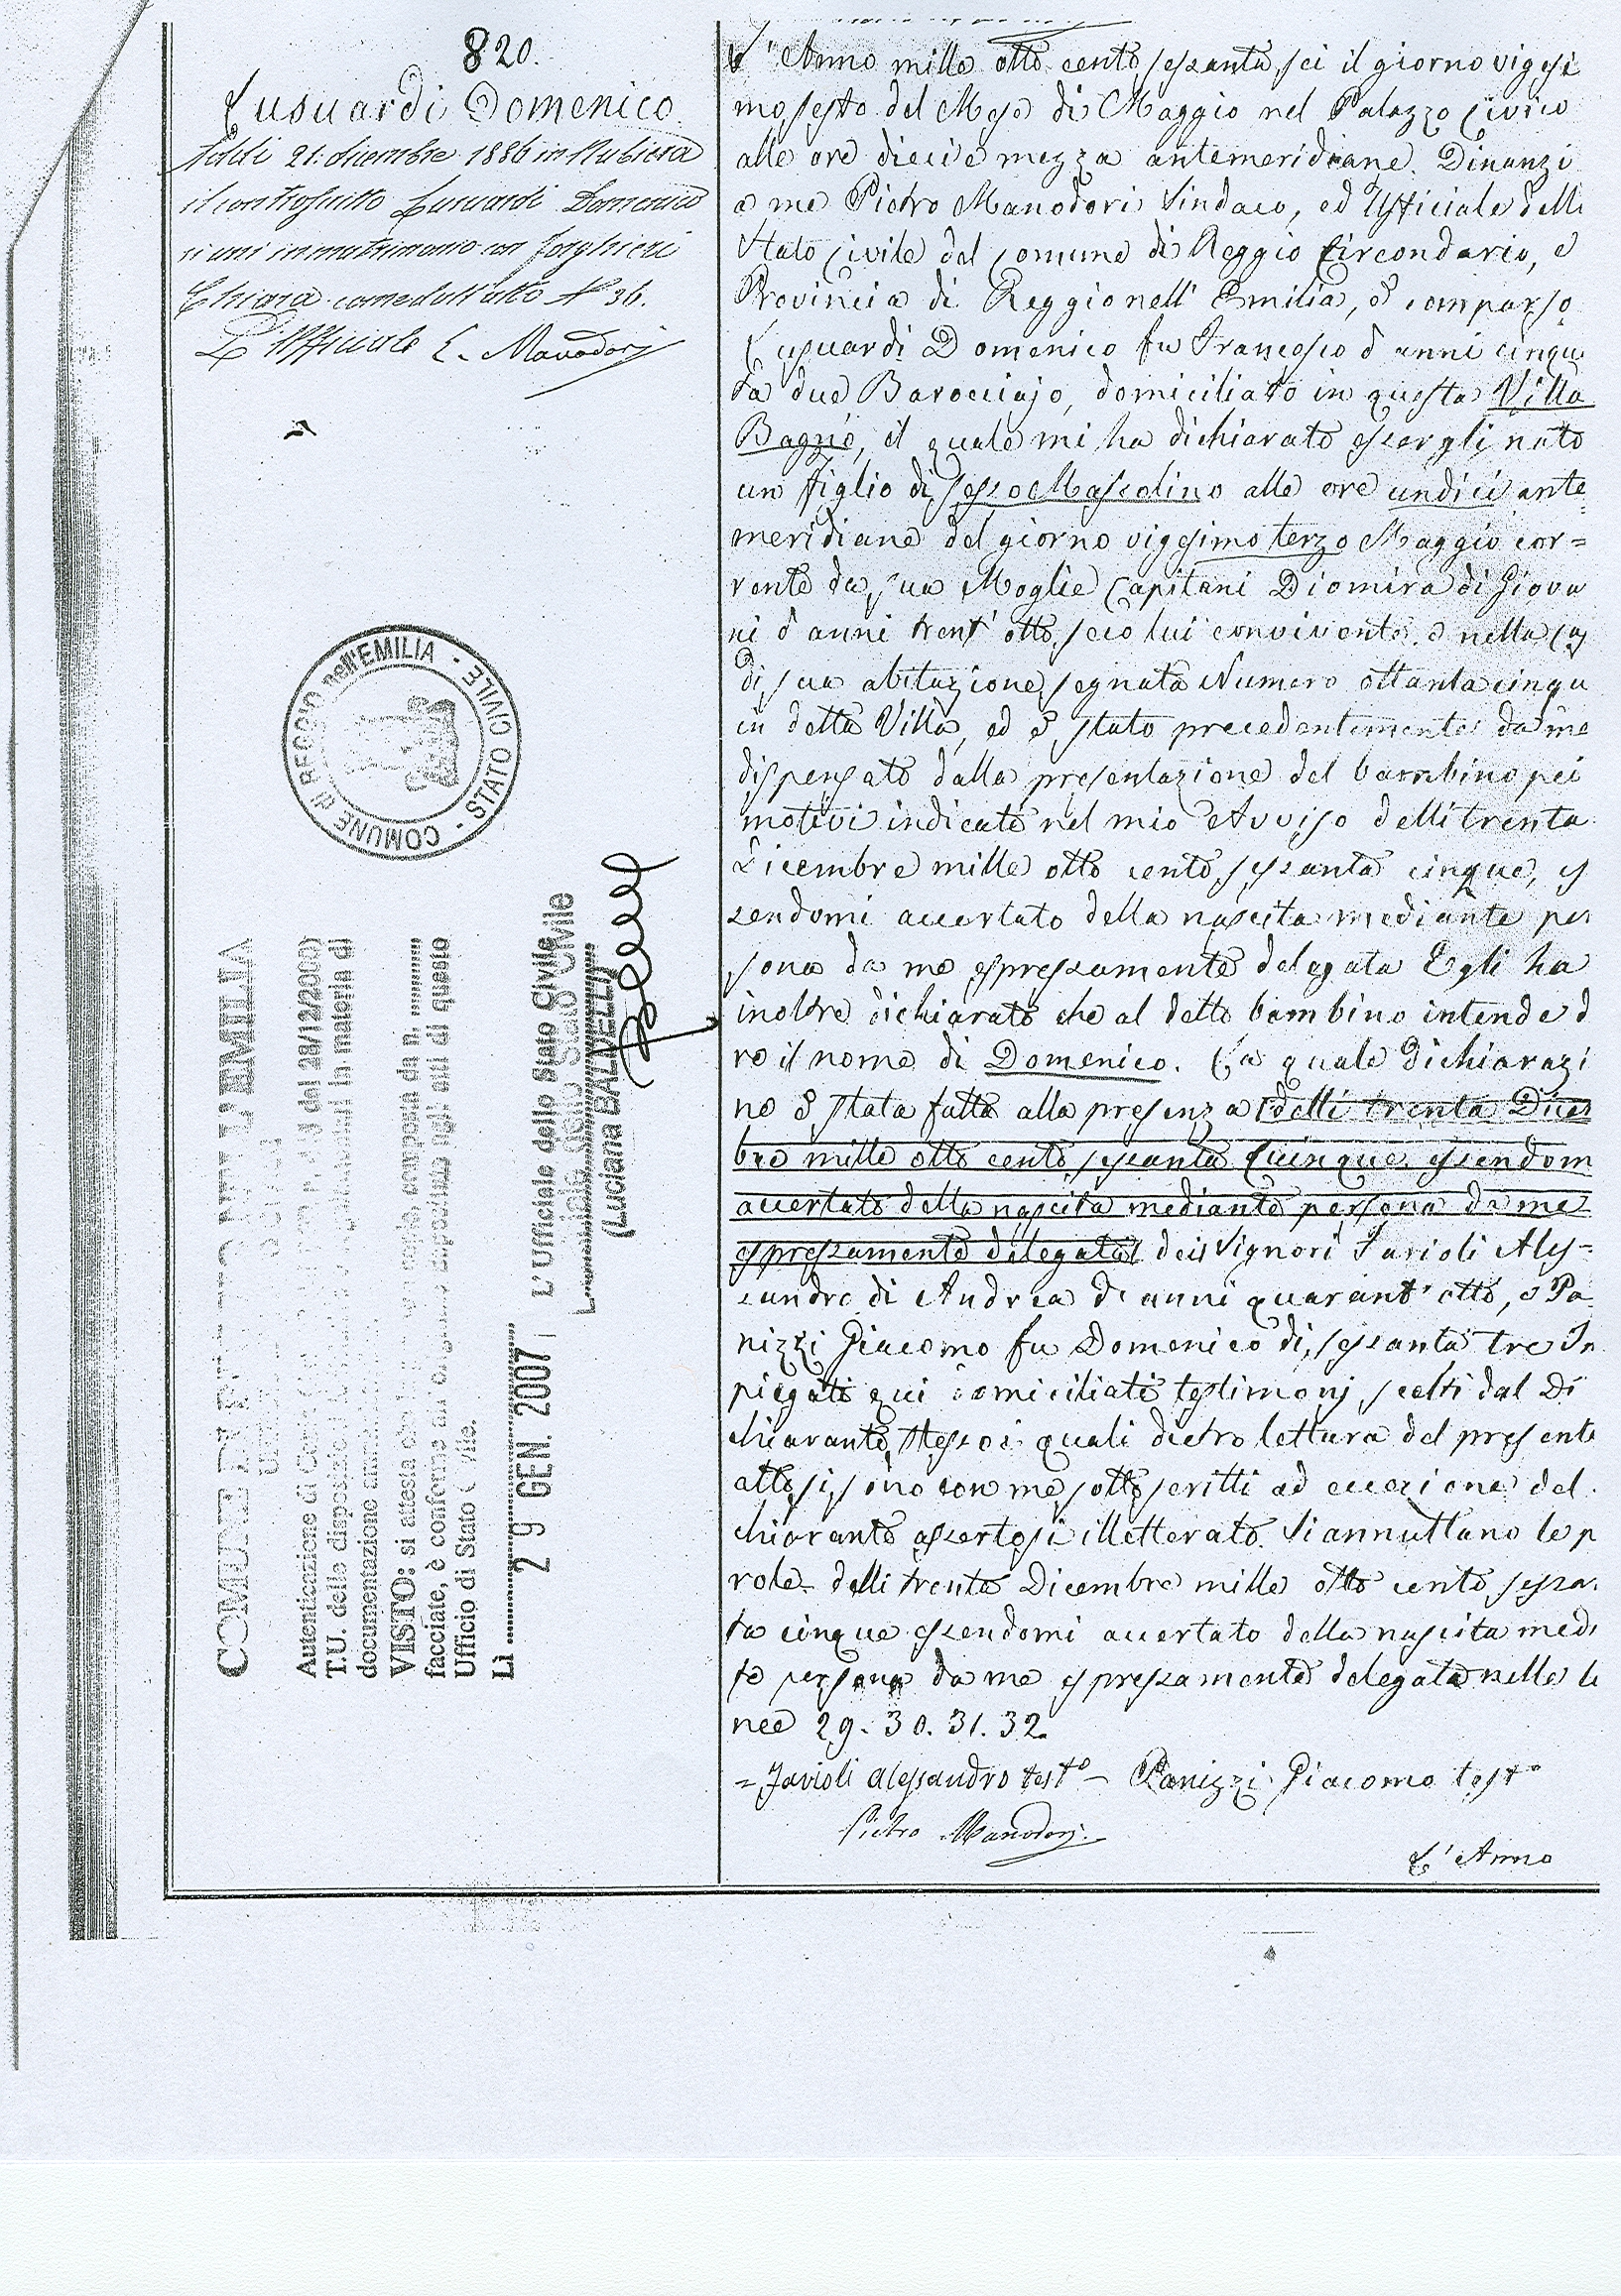 820.
Lusuardi Domenico.
Addi 21. dicembre 1886 in Rubiera
il controscritto Lusuardi Domenico
si unì in matrimonio con Forghieri
Chiara come dall'atto N° 36.
L'Uffiziale L. Manodori
COMUNE di REGGIO nell'EMILIA - STATO CIVILE -
COMUNE DI REGGIO NELL'EMILIA
Autenticazione di del 28/12/2000)
T.U. delle in materia di
documentazione
VISTO: si attesta che composta da n.
facciate, è conforme agli atti di questo
Ufficio di Stato Civile.
Lì 29 GEN. 2007
L'Ufficiale dello Stato Civile
(Luciana BALDELLI)
L'Anno mille otto cento sessanta sei il giorno vigesi
mo sesto del Mese di Maggio nel Palazzo Civico
alle ore dieci e mezza antemeridiane. Dinanzi
a me Pietro Manodori Sindaco, ed Ufficiale dell
Stato Civile del Comune di Reggio Circondario, e
Provincia di Reggio nell' Emilia, è comparso
Lusuardi Domenico fu Francesco d anni cinqu
ta due Barocciajo, domiciliato in questa Villa
Bagno, il quale mi ha dichiarato essergli nato
un figlio di sesso Mascolino alle ore undici ante
meridiane del giorno vigesimo terzo Maggio cor=
rente da sua Moglie Capitani Diomira di Giova
ni d anni trent' otto seco lui convivente e nella Cas
di sua abitazione segnata Numero ottanta cinqu
in detta Villa, ed è stato precedentemente da me
dispensato dalla presentazione del bambino pei
motivi indicati nel mio Avviso delli trenta
Dicembre mille otto cento sessanta cinque, es
sendomi accertato della nascita mediante per
sona da me espressamente delegata Egli ha
inoltre dichiarato che al detto bambino intende d
re il nome di Domenico. La quale dichiarazi
ne è stata fatta alla presenza (delli trenta Dicem
bre mille otto cento sessanta cinque essendom
accertato della nascita mediante persona da me
espressamente delegata) dei Signori Favioli Ales=
sandro di Andrea d' anni quarant' otto, e Pa
nizzi Giacomo fu Domenico di sessanta tre Im
piegati qui domiciliati testimonj scelti dal Di
chiarante stesso i quali dietro lettura del presente
atto si sono con me sotto scritti ad eccezione del
chiarante assertosi illetterato. Si annullano le p
role delli trenta Dicembre mille otto cento sessa
ta cinque essendomi accertato della nascita medi
te persona da me espressamente delegata nelle li
nee 29. 30. 31. 32.
= Favioli Alessandro test° - Panizzi Giacomo test°
Pietro Manodori
L' Anno